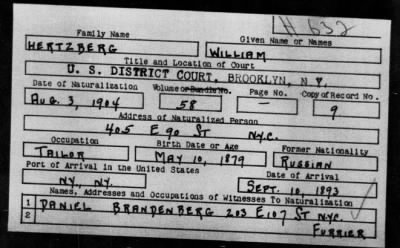 H 632
Family Name Given Name or Names
HERTZBERG WILLIAM
Title and Location of Court
U. S. DISTRICT COURT, BROOKLYN, N. Y.
Date of Naturalization Volume or Bundle No. Page No. Copy of Record No.
AUG. 3, 1904 58 — 9
Address of Naturalized Person
405 E 90 ST N.Y.C.
Occupation Birth Date or Age Former Nationality
TAILOR MAY 10, 1879 RUSSIAN
Port of Arrival in the United States Date of Arrival
N.Y., N.Y. SEPT. 10, 1893
Names, Addresses and Occupations of Witnesses To Naturalization
1 DANIEL BRANDENBERG 203 E 107 ST N.Y.C.
2 FURRIER